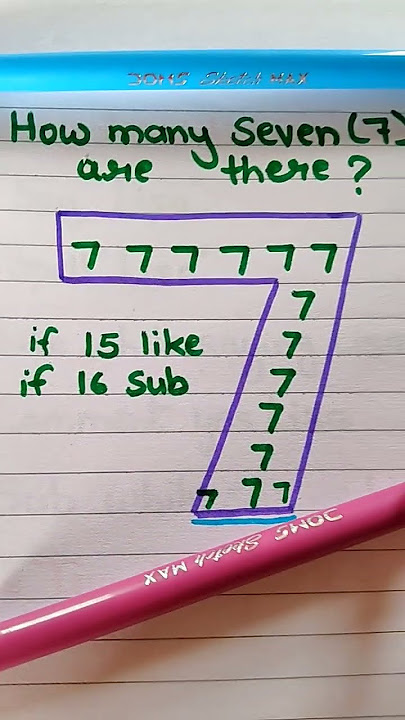 JOMS Sketch MAX
How many Seven (7)
are there?
7 7 7 7 7 7
7
if 15 like
7
if 16 sub
7
7
7
7 7 7
JOMS Sketch MAX